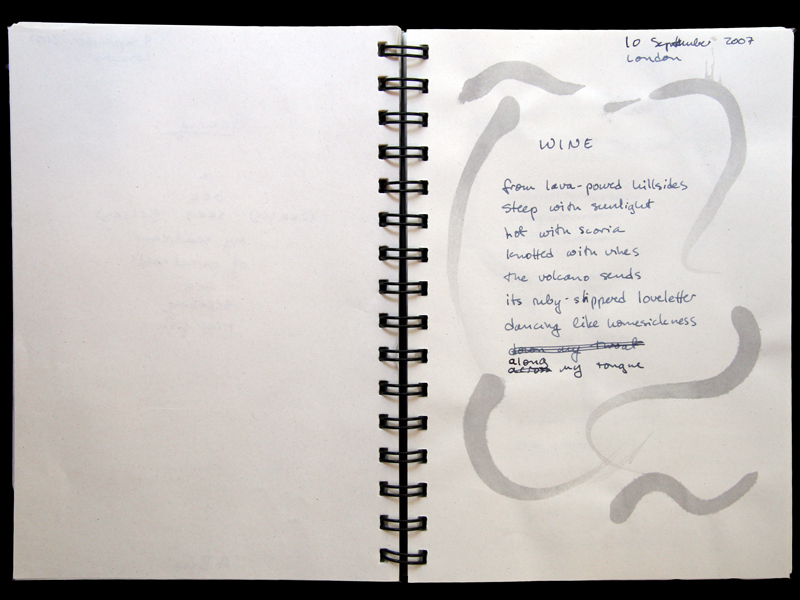 10 September 2007
London
WINE
from lava-poured hillsides
steep with sunlight
hot with scoria
knotted with vines
the volcano sends
its ruby-slippered loveletter
dancing like homesickness
down my throat
along
across my tongue